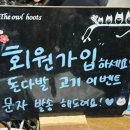 The owl hoots
회원가입 하세요!
도다발 고기 이벤트
문자 발송 해드려요!